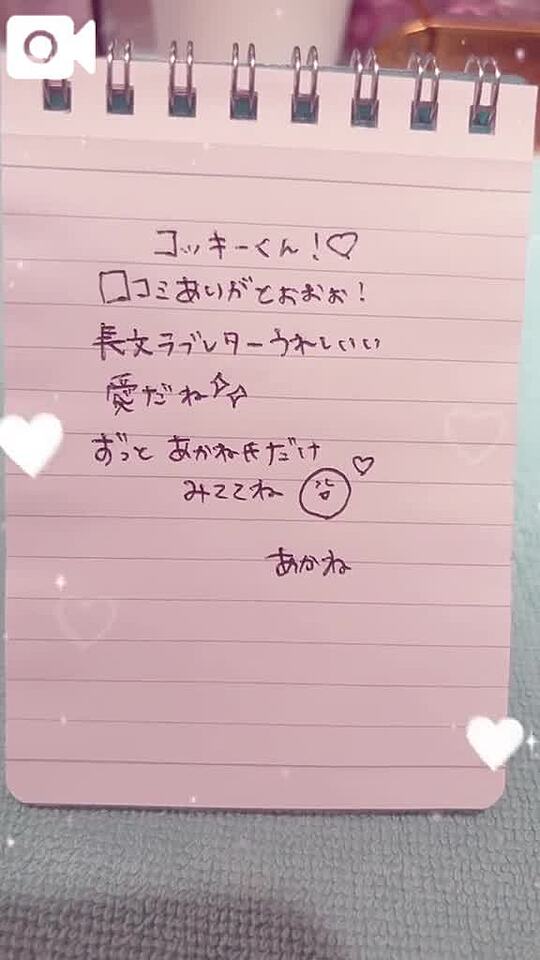 コッキーくん！♡
口コミありがとぉおぉ！
長文ラブレターうれしいい
愛だね✨
ずっと あかねだけ
みててね ♡
あかね